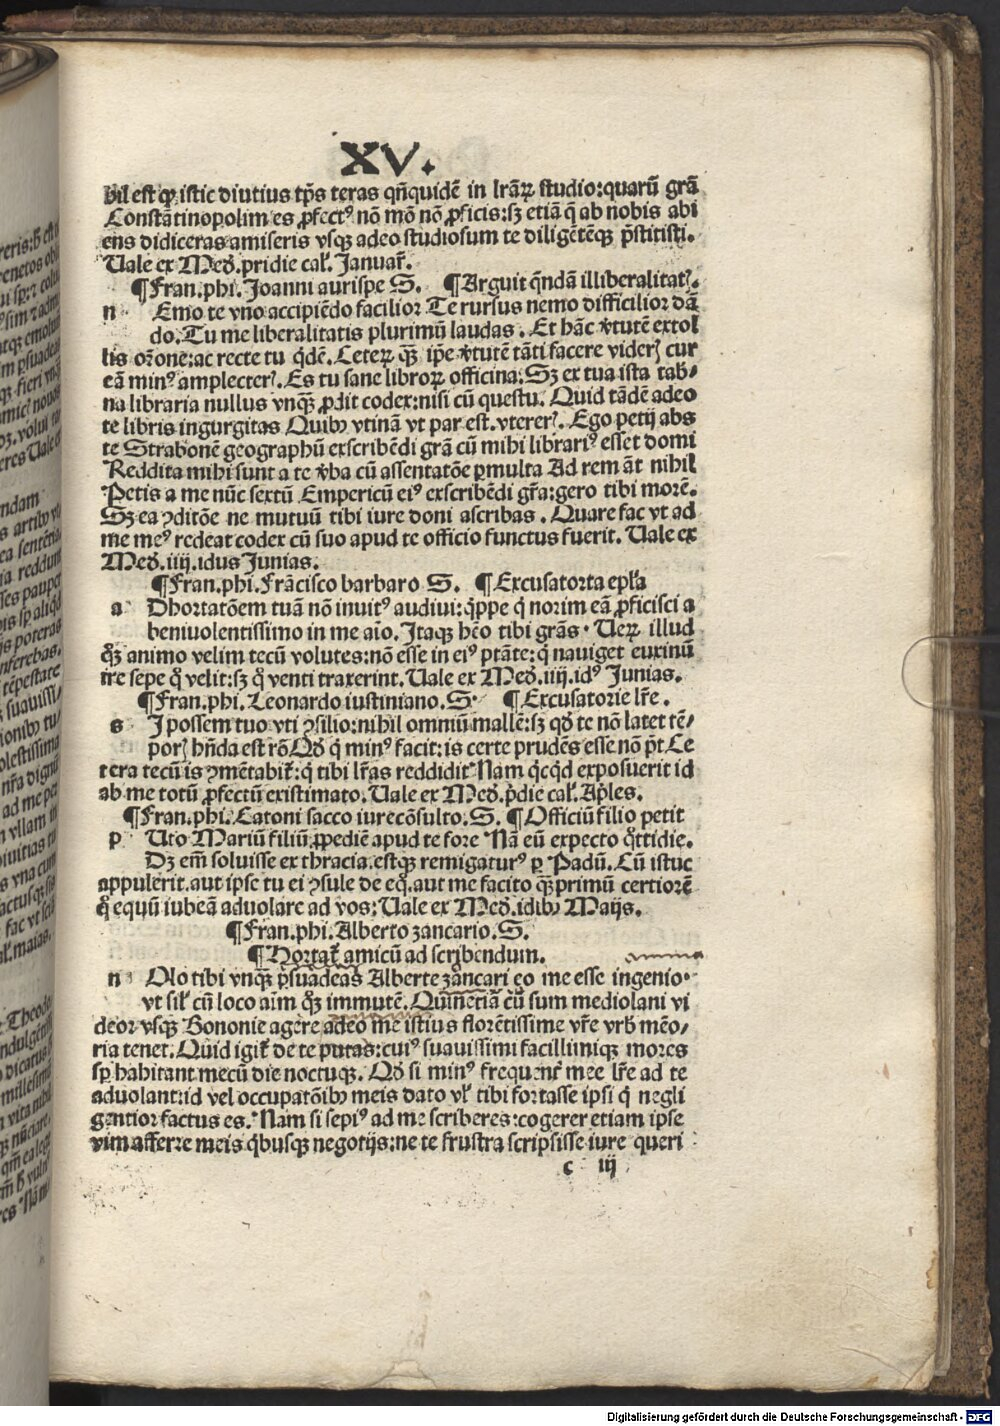 XV.
hil est qꝫ istic diutius tp̄s teras qn̄quidē in lr̄aꝝ studio:quarū grā
Constātinopolim es ꝓfectꝰ nō mō nō ꝓficis:sꝫ etiā q̄ ab nobis abi
ens didiceras amiseris vsqꝫ adeo studiosum te diligētēqꝫ p̄stitisti.
Uale ex Med̄.pridie cal̄. Januar̄.
¶Fran.phi. Joanni aurispe S. ¶Arguit q̄ndā illiberalitatꝭ.
n Emo te vno accipiēdo facilior Te rursus nemo difficilior dā
do. Tu me liberalitatis plurimū laudas. Et hāc v̄tutē extol
lis or̄one:ac recte tu q̄dē. Ceteꝝ qꝫ̄ ip̄e v̄tutē tāti facere viderꝭ cur
eā minꝰ amplecterꝭ. Es tu sane libroꝝ officina: Sꝫ ex tua ista tab⸗
na libraria nullus vnqꝫ̄ ꝓdit codex:nisi cū questu. Quid tādē adeo
te libris ingurgitas Quibꝰ vtinā vt par est. vtererꝭ. Ego petij abs
te Strabonē geographū exscribēdi grā cū mihi librariꝰ esset domi
Reddita mihi sunt a te v̄ba cū assentatōe ꝑmulta Ad rem āt nihil
Petis a me nūc sextū Empericū eiꝰ exscribēdi gr̄a:gero tibi morē.
Sꝫ ea ꝯditōe ne mutuū tibi iure doni ascribas. Quare fac vt ad
me meꝰ redeat codex cū suo apud te officio functus fuerit. Uale ex
Med̄. iiij.idus Junias.
¶Fran.phi. Frācisco barbaro S. ¶Excusatorta epl̄a
a Dhortatōem tuā nō inuitꝰ audiui:q̄ppe q̄ norim eā ꝓficisci a
beniuolentissimo in me aīo. Itaqꝫ hēo tibi grās. Ueꝝ illud
q̊ꝫ animo velim tecū volutes:nō esse in eiꝰ ptāte:q̄ nauiget euxinū
ire sepe q̊ velit:sꝫ q̊ venti traxerint. Uale ex Med̄. iiij.idꝰ Junias.
¶Fran.phi. Leonardo iustiniano. S. ¶Excusatorie lr̄e.
s I possem tuo vti ꝯsilio:nihil omniū mallē:sꝫ qd̄ te nō latet tē⸗
porꝭ hn̄da est rō Qd̄ q̄ minꝰ facit:is certe prudēs esse nō p̄t Ce
tera tecū is ꝯmētabit̄:q̄ tibi lr̄as reddidit Nam qcqd exposuerit id
ab me totū ꝓfectū existimato. Uale ex Med̄. p̄die cal̄. Ap̄les.
¶Fran.phi. Catoni sacco iurecōsulto. S. ¶Officiū filio petit
p Uto Mariū filiū.ꝓpediē apud te fore Nā eū expecto q̊ttidie.
Dꝫ em̄ soluisse ex thracia.estqꝫ remigaturꝰ ꝑ Padū. Cū istuc
appulerit.aut ipse tu ei ꝯsule de eq̊.aut me facito qꝫ̄primū certiorē
q̊ equū iubeā aduolare ad vos: Uale ex Med̄.idibꝰ Maijs.
¶Fran.phi. Alberto zancario. S.
¶Hortat̄ amicū ad scribendum.
n Olo tibi vnqꝫ̄ p̄suadeas Alberte zancari eo me esse ingenio.
vt sil̄ cū loco aīm q̊ꝫ immutē. Quinetiā cū sum mediolani vi
deor vsqꝫ Bononie agere adeo me istius florētissime vr̄e vrb̄ mēo⸗
ria tenet. Quid igit̄ de te putas:cuiꝰ suauissimi facillimiqꝫ mores
sp̄ habitant mecū die noctuqꝫ. Qd̄ si minꝰ frequent̄ mee lr̄e ad te
aduolant:id vel occupatōibꝰ meis dato vl̄ tibi fortasse ipsi q̄ negli
gentior factus es. Nam si sepiꝰ ad me scriberes:cogerer etiam ipse
vim afferre meis q̄busqꝫ negotijs:ne te frustra scripsisse iure queri
c iij
Digitalisierung gefördert durch die Deutsche Forschungsgemeinschaft - DFG